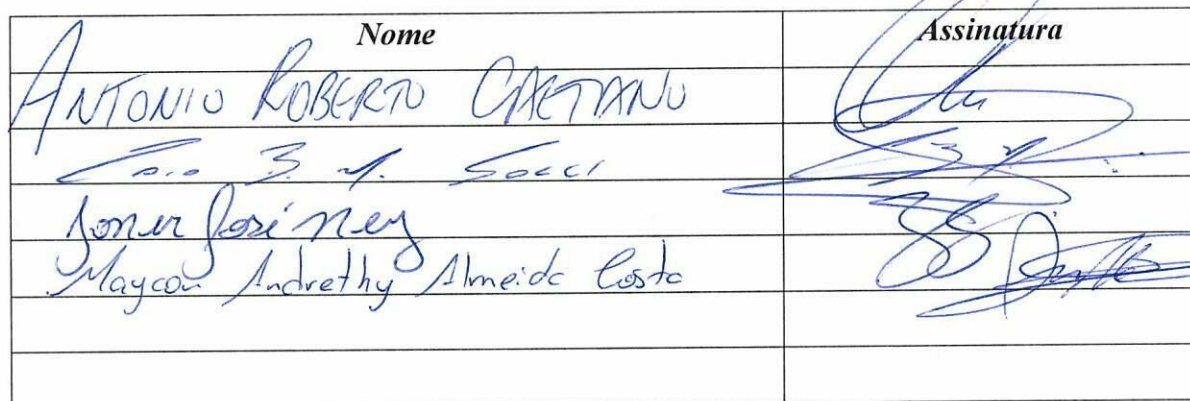 Nome Assinatura
ANTONIO ROBERTO CAETANO
Caio B. M. Socci
José Ney
Maycon Andrethy Almeida Costa